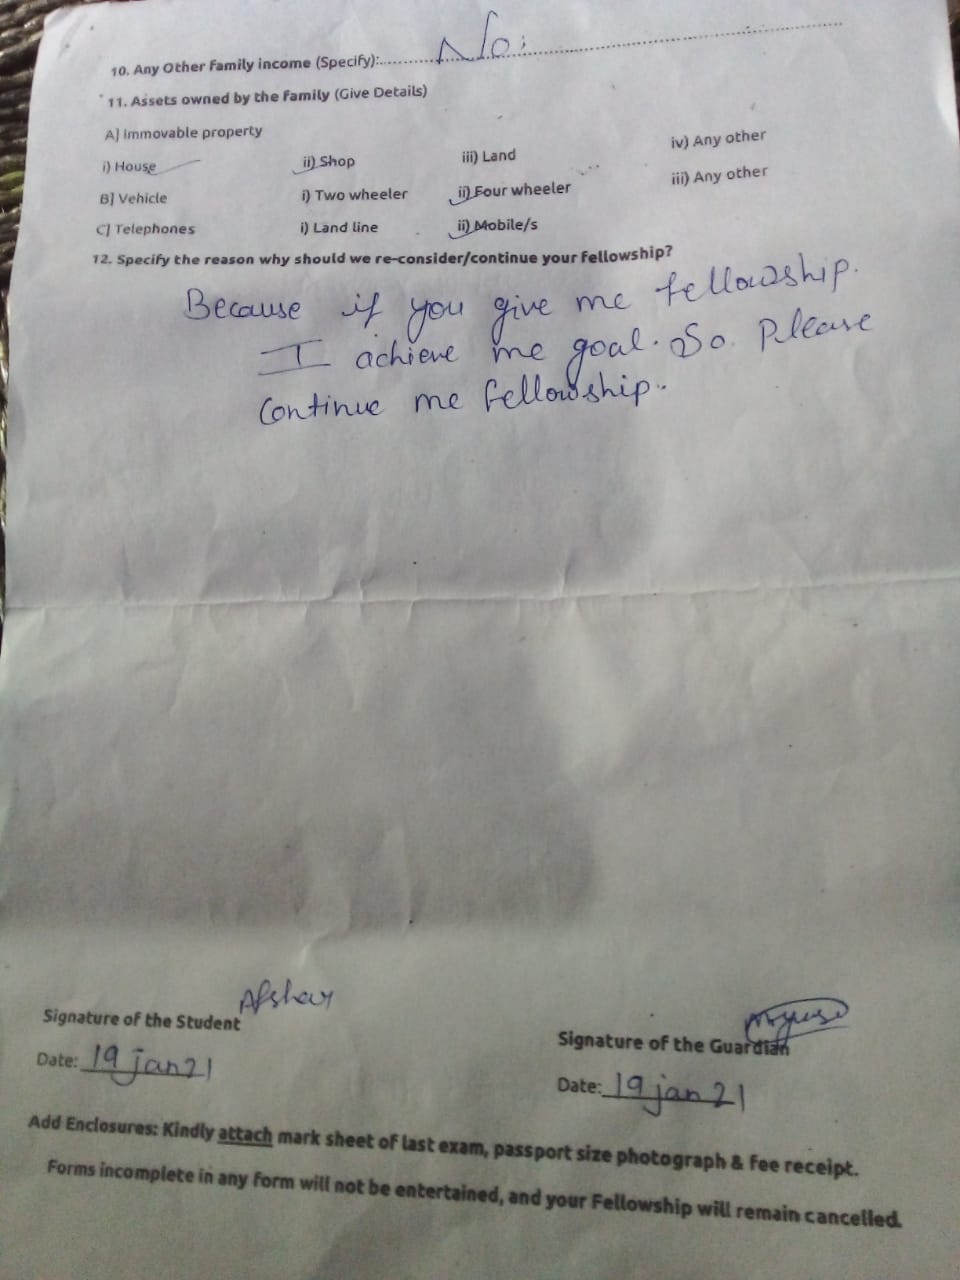 10. Any Other Family income (Specify):........No:........
11. Assets owned by the family (Give Details)
A] Immovable property
i) House ii) Shop iii) Land iv) Any other
B] Vehicle i) Two wheeler ii) Four wheeler iii) Any other
C] Telephones i) Land line ii) Mobile/s
12. Specify the reason why should we re-consider/continue your fellowship?
Because if you give me fellowship.
I achieve me goal. So. Please
Continue me fellowship..
Signature of the Student
Signature of the Guardian
Date: 19 jan 21
Date: 19 jan 21
Add Enclosures: Kindly attach mark sheet of last exam, passport size photograph & fee receipt.
Forms incomplete in any form will not be entertained, and your Fellowship will remain cancelled.